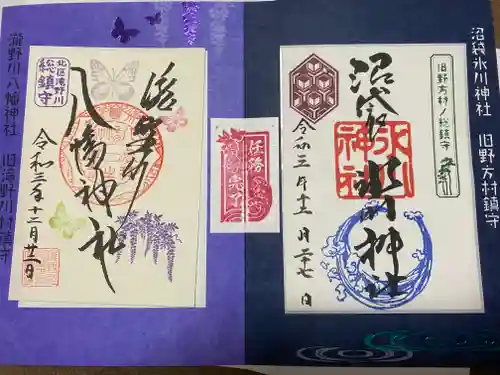 沼袋氷川神社 旧野方村鎮守
旧野方村ノ総鎮守
沼袋
氷川神社
氷川
神社
令和三年十二月二十七日
任務
完了
瀧野川八幡神社 旧滝野川村鎮守
北区滝野川
総鎮守
八幡神社
令和三年十二月廿一日